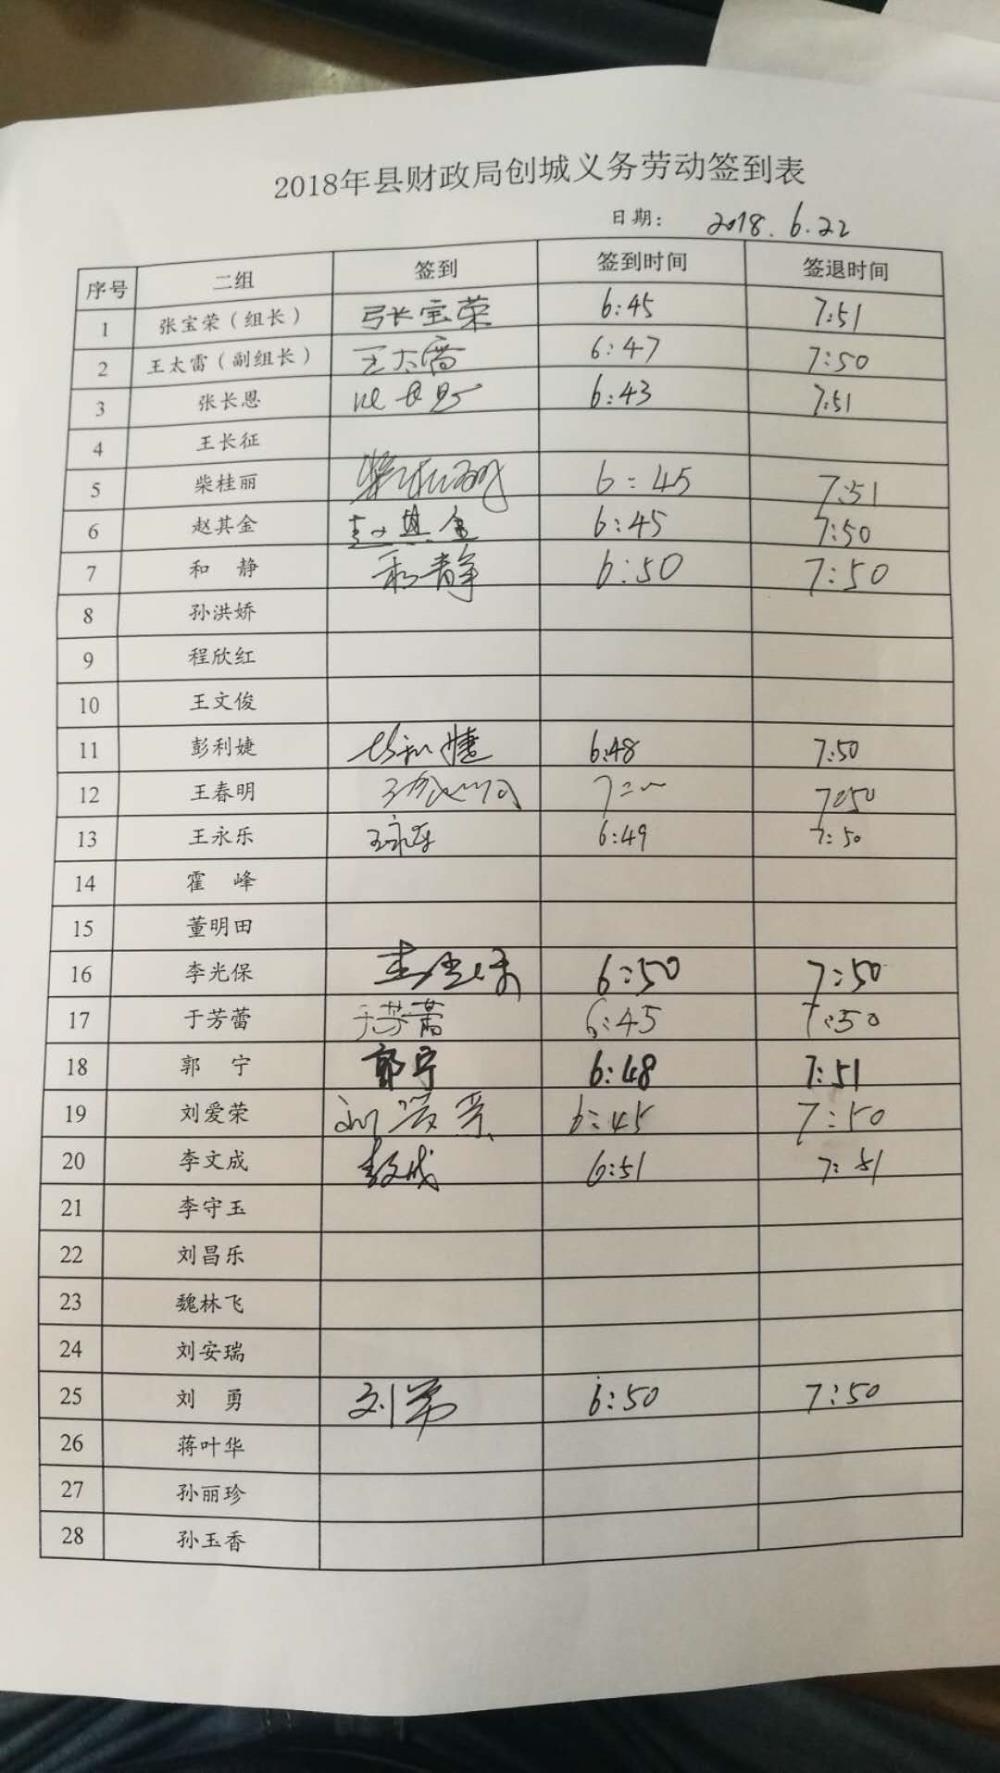 2018年县财政局创城义务劳动签到表
日期： 2018.6.22
序号 二组 签到 签到时间 签退时间
1 张宝荣（组长） 张宝荣 6:45 7:51
2 王太雷（副组长） 王太雷 6:47 7:50
3 张长恩 张长恩 6:43 7:51
4 王长征
5 柴桂丽 柴桂丽 6:45 7:51
6 赵其金 赵其金 6:45 7:50
7 和 静 和静 6:50 7:50
8 孙洪娇
9 程欣红
10 王文俊
11 彭利婕 彭利婕 6:48 7:50
12 王春明 王春明 7:50
13 王永乐 王永乐 6:49 7:50
14 霍 峰
15 董明田
16 李光保 李光保 6:50 7:50
17 于芳蕾 于芳蕾 6:45 7:50
18 郭 宁 郭宁 6:48 7:51
19 刘爱荣 刘爱荣 6:45 7:50
20 李文成 李文成 6:51 7:51
21 李守玉
22 刘昌乐
23 魏林飞
24 刘安瑞
25 刘 勇 刘勇 6:50 7:50
26 蒋叶华
27 孙丽珍
28 孙玉香